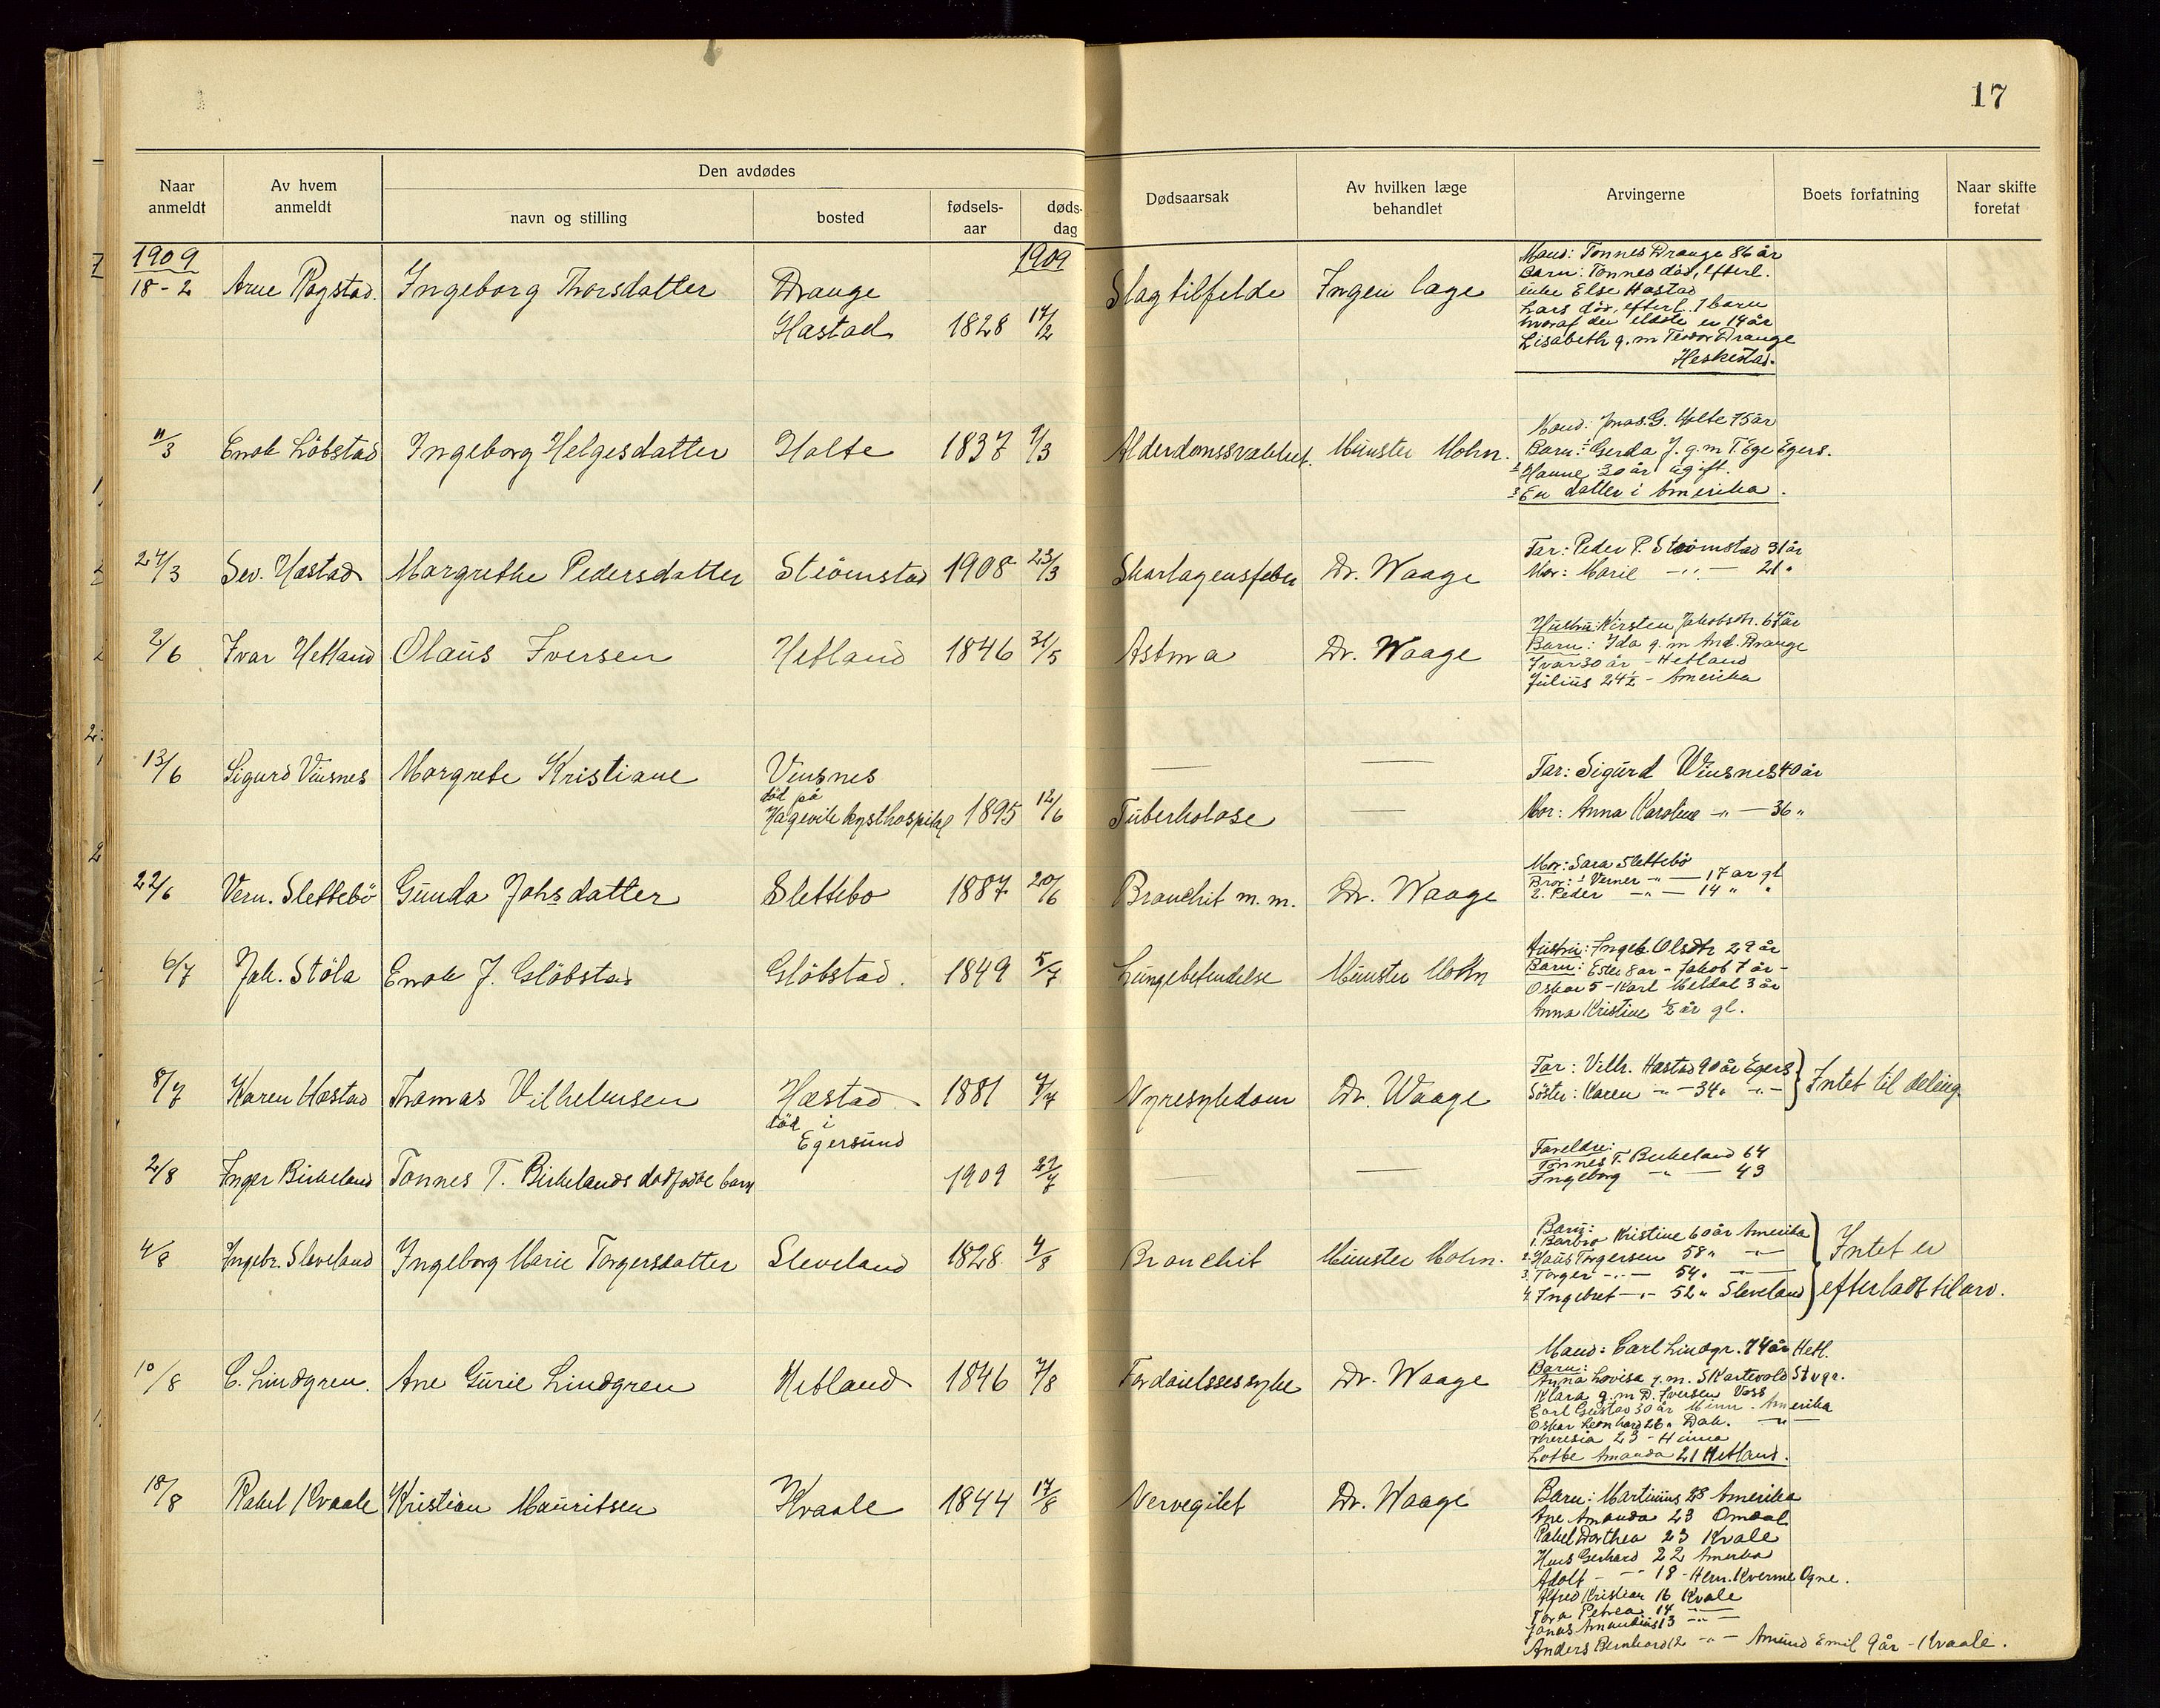 17
Naar anmeldt
Av hvem anmeldt
Den avdødes
navn og stilling
bosted
fødsels-aar
døds-dag
Dødsaarsak
Av hvilken læge behandlet
Arvingerne
Boets forfatning
Naar skifte foretat
1909 1909
18-2 Arne Rogstad. Ingeborg Thorsdatter Drange Hæstad 1828 14/2 Slagtilfelde Ingen læge
Mand: Tønnes Drange 86 år
Barn: Tønnes død, efterl.
enke Else Hæstad
Lars død, efterl. 7 barn
hvoraf den eldste er 14 år
Lisabeth g. m Teodor Drange
Heskestad.
11/3 Enok Löbstad Ingeborg Helgesdatter Holte 1837 9/3 Alderdomssvækket. Münster Mohn.
Mand: Jonas G. Holte 75 år
Barn: 1 Gerda J. g. m T. Ege Egers.
2 Hanne 30 år ugift.
3 En datter i Amerika.
24/3 Sev. Hæstad Margrethe Pedersdatter Strömstad 1908 23/3 Skarlagensfeber Dr. Waage
Far: Peder P. Strömstad 31 år
Mor: Marie -„- 21 "
2/6 Ivar Hetland Olaus Iversen Hetland 1846 31/5 Astma Dr. Waage
Hustru: Kirsten Jakobsdtr. 67 år
Barn: Ida g. m And. Drange
Ivar 30 år - Hetland
Julius 24½ - Amerika
13/6 Sigurd Viusnes Margrete Kristiane Viusnes
død på
Hagevik kysthospital 1895 12/6 Tuberkolose
Far: Sigurd Wiusnes 40 år
Mor: Anna Karoline -„- 36 "
22/6 Vern. Slettebö Gunda Johsdatter Slettebo 1887 20/6 Bronchit m. m. Dr. Waage
Mor: Sara Slettebö
Bror: 1 Verner -„- 17 år gl
2. Peder -„- 14 " "
6/7 Joh. Stöla Enok J. Glöbstad Glöbstad. 1849 5/7 Lungebetendelse Münster Mohn
Hustru: Ingeb. Olsdtr 29 år
Barn: Ester 8 år - Jakob 7 år -
Oskar 5 - Karl Meldal 3 år
Anna Kristine ½ år gl.
8/7 Karen Hæstad Thomas Vilhelmsen Hæstad
död i
Egersund 1881 7/7 Nyresykdom Dr. Waage
Far: Vilh. Hæstad 90 år Egers
Söster: Karen -„- 34 " -„-
Intet til deling
2/8 Inger Birkeland Tonnes T. Birkelands dødfødte barn 1909 29/7
Foreldre:
Tønnes T. Birkeland 64
Ingeborg -„- 43
4/8 Ingebr. Sleveland Ingeborg Marie Torgersdatter Sleveland 1828 4/8 Bronchit Münster Mohn.
Barn:
1. Barbro Kristine 60 år Amerika
2. Hans Torgersen 58 " -„-
3. Torger -„- 54 " -„-
4. Ingebret -„- 52 " Sleveland
Intet er
efterladt til arv.
10/8 C. Lindgren. Ane Gurie Lindgren Hetland 1846 7/8 Fordöielsessyke Dr. Waage
Mand: Carl Lindgr. 74 år Hetl.
Barn:
Anna Lovisa g. m. S Kartevold Stvgr.
Klara g. m D. Iversen Voss
Carl Gustav 30 år Minn. Amerika
Oskar Leonhard 26 " Dak. -„-
Theresia 23 - Hinna
Lotte Amanda 21 Hetland.
18/8 Rakel Kvaale Kristian Mauritsen Kvaale 1844 17/8 Nervegikt Dr. Waage
Barn: Martinius 28 Amerika
Ane Amanda 23 Omdal
Rakel Dorthea 23 Kvale
Hans Gerhard 22 Amerika
Adolf -„- 18 - Henr. Kverme Ogne.
Alfred Kristian 16 Kvale
Tora Petrea 14 -„-
Jonas Amandius 13 -„-
Anders Bernhard 12 -„- Amund Emil 9 år - Kvaale.